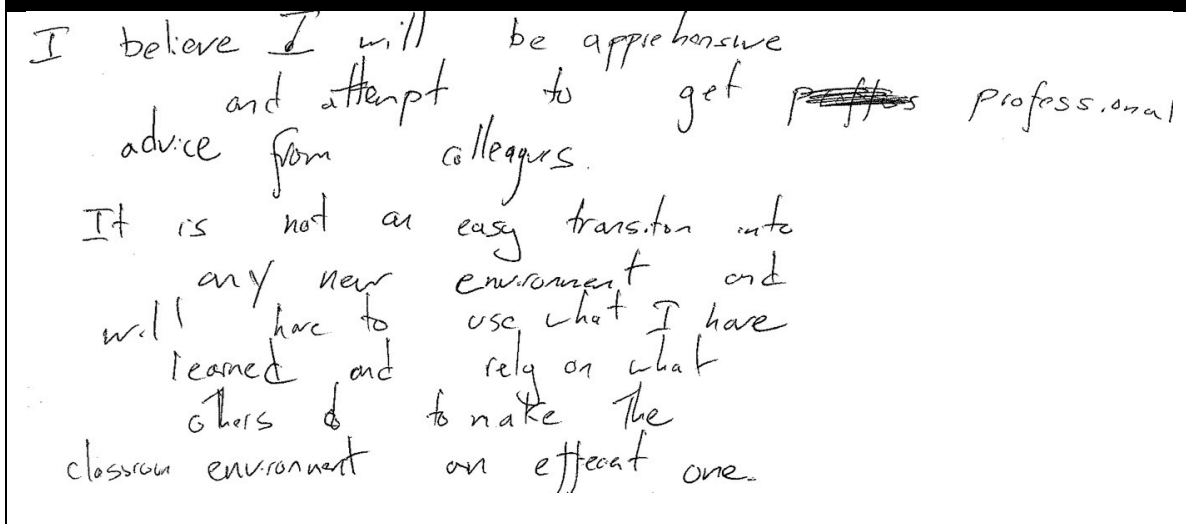 I believe I will be apprehensive
and attempt to get professional
advice from colleagues.
It is not an easy transiton into
any new environment and
will have to use what I have
learned and rely on what
others do to make The
classroom environment an effecent one.